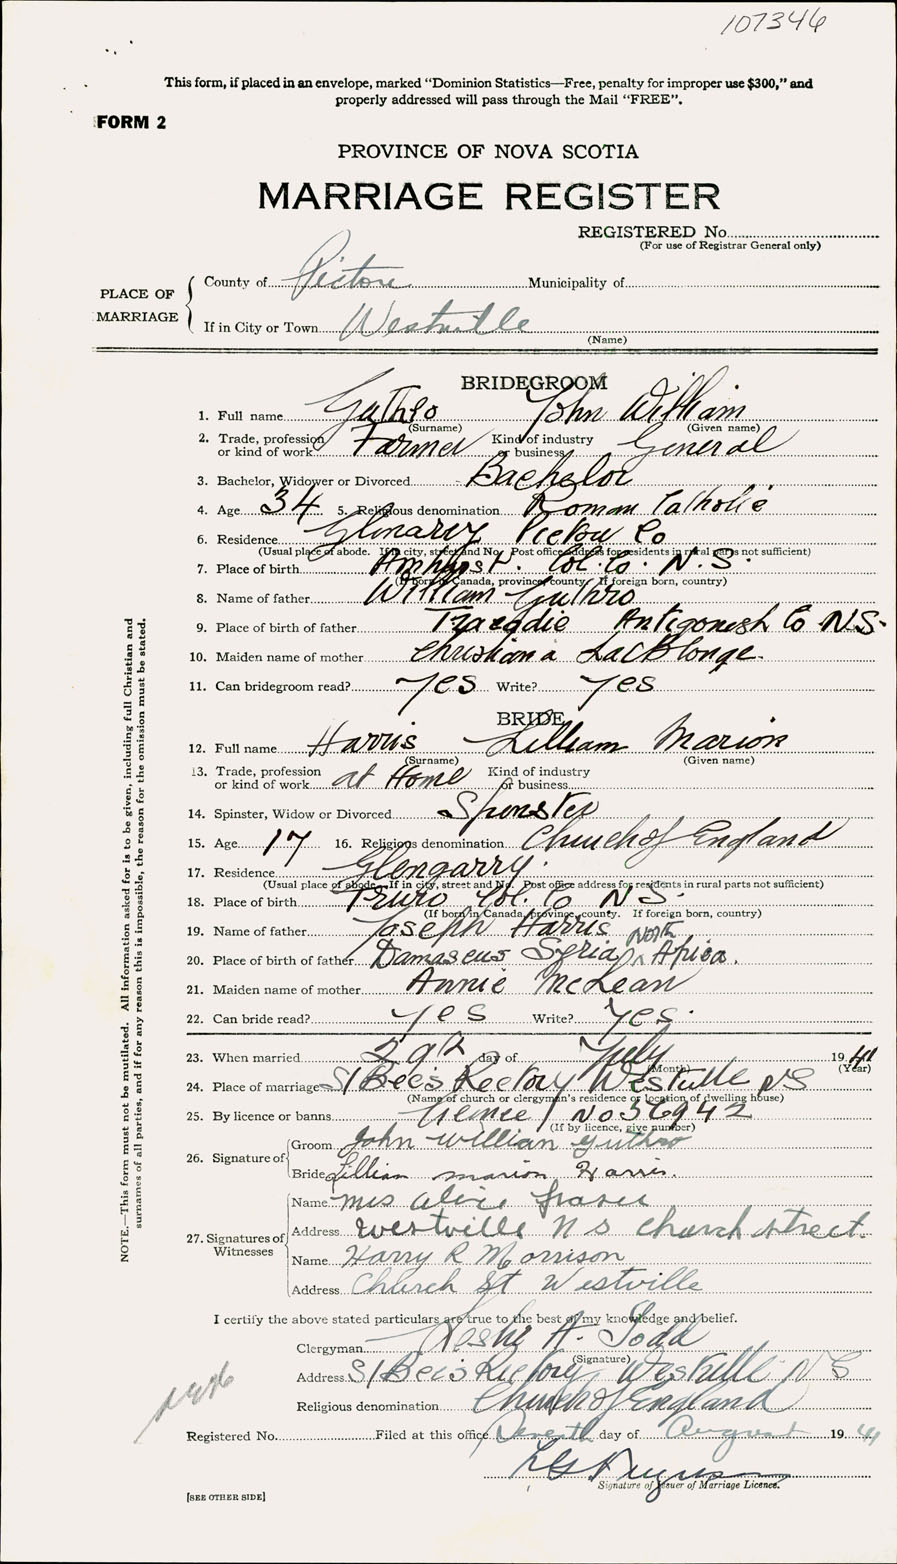 107346
This form, if placed in an envelope, marked “Dominion Statistics—Free, penalty for improper use $300,” and
properly addressed will pass through the Mail “FREE”.
FORM 2
PROVINCE OF NOVA SCOTIA
MARRIAGE REGISTER
REGISTERED No.
(For use of Registrar General only)
PLACE OF MARRIAGE
County of Pictou Municipality of
If in City or Town Westville
(Name)
BRIDEGROOM
1. Full name Guthro John William
(Surname) (Given name)
2. Trade, profession or kind of work Farmer Kind of industry or business General
3. Bachelor, Widower or Divorced Bachelor
4. Age 34 5. Religious denomination Roman Catholic
6. Residence Glenarry Pictou Co
(Usual place of abode. If in city, street and No. Post office address for residents in rural parts not sufficient)
7. Place of birth Amhurst. Col. Co. N.S.
(If born in Canada, province, county. If foreign born, country)
8. Name of father William Guthro
9. Place of birth of father Tracadie Antigonish Co N.S.
10. Maiden name of mother Christiana LaBlonge.
11. Can bridegroom read? Yes Write? Yes
BRIDE
12. Full name Harris Lilliam Marion
(Surname) (Given name)
13. Trade, profession or kind of work at Home Kind of industry or business
14. Spinster, Widow or Divorced Spinster
15. Age 17 16. Religious denomination Church of England
17. Residence Glengarry.
(Usual place of abode. If in city, street and No. Post office address for residents in rural parts not sufficient)
18. Place of birth Truro Col. Co N.S.
(If born in Canada, province, county. If foreign born, country)
19. Name of father Joseph Harris
20. Place of birth of father Damascus Syria North Africa.
21. Maiden name of mother Annie McLean
22. Can bride read? Yes Write? Yes.
23. When married 29th day of July 1941
(Month) (Year)
24. Place of marriage St Bee's Rectory Westville NS
(Name of church or clergyman's residence or location of dwelling house)
25. By licence or banns licence No 36942
(If by licence, give number)
26. Signature of
Groom John William Guthro
Bride Lillian marion Harris.
27. Signatures of Witnesses
Name Mrs Alice Fraser
Address Westville N S Church street.
Name Harry R Morrison
Address Church St Westville
I certify the above stated particulars are true to the best of my knowledge and belief.
Clergyman Leslie A. Todd
(Signature)
Address St Bee's Rectory Westville N S
Religious denomination Church of England
Registered No. Filed at this office Seventh day of August 1941
Signature of Issuer of Marriage Licence.
[SEE OTHER SIDE]
NOTE.—This form must not be mutilated. All Information asked for is to be given, including full Christian and
surnames of all parties, and if for any reason this is impossible, the reason for the omission must be stated.